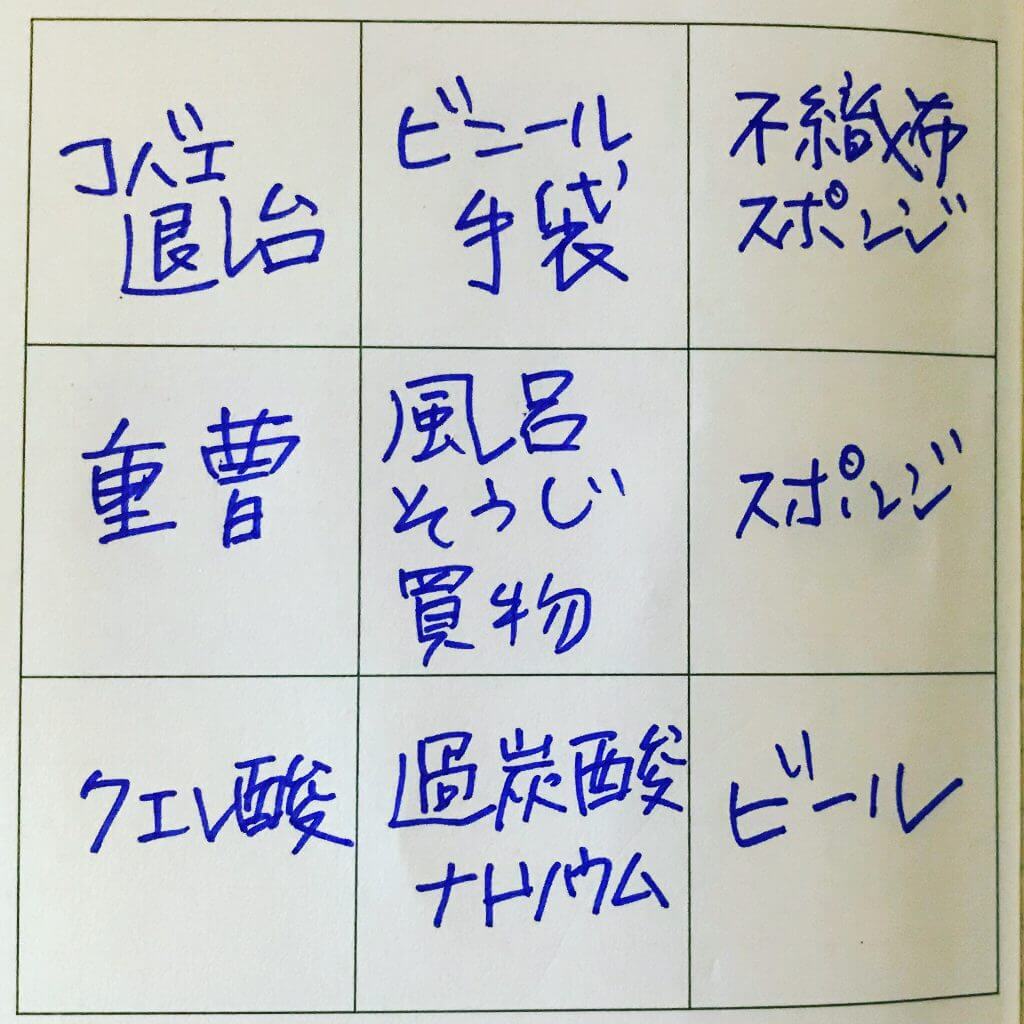 コバエ
退治
ビニール
手袋
不織布
スポンジ
重曹
風呂
そうじ
買物
スポンジ
クエン酸
過炭酸
ナトリウム
ビール